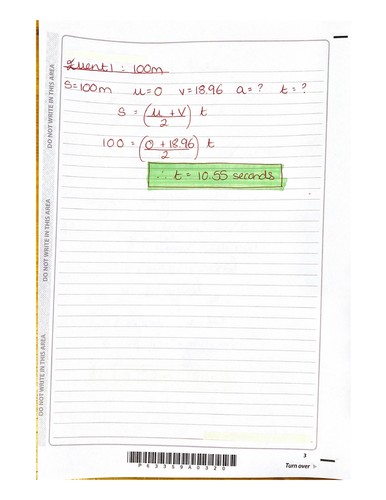 Event 1 : 100m
S=100m u=0 v=18.96 a=? t=?
S = (u + v / 2) t
100 = (0 + 18.96 / 2) t
∴ t = 10.55 seconds
DO NOT WRITE IN THIS AREA
DO NOT WRITE IN THIS AREA
DO NOT WRITE IN THIS AREA
3
P63359A0320
Turn over